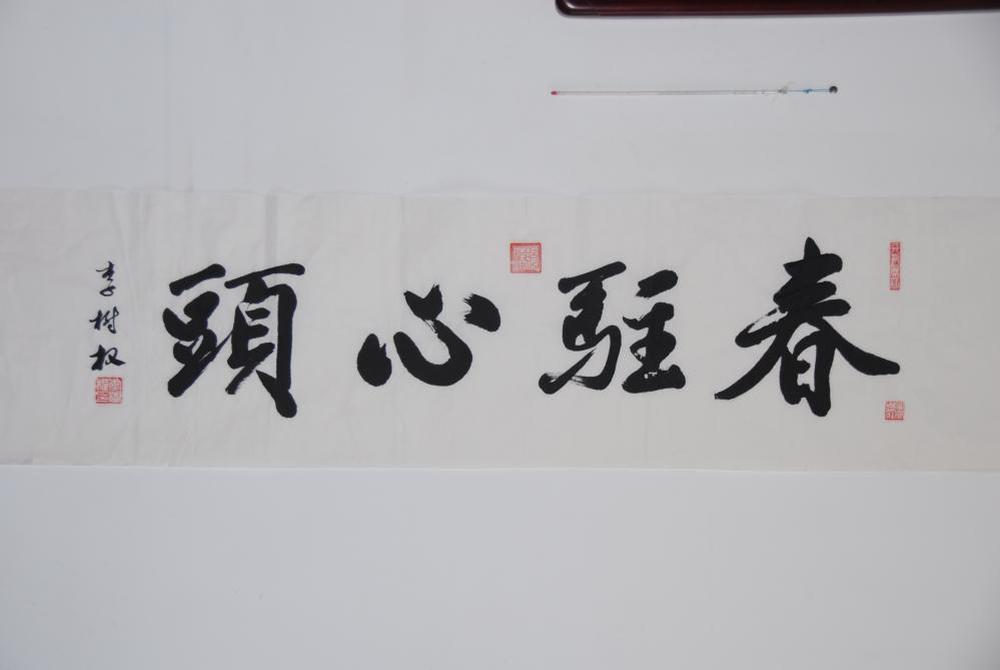 春駐心頭
李樹权